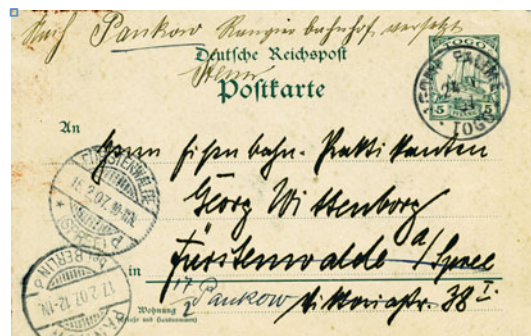 Nach Pankow Rangierbahnhof versetzt
TOGO
5 5
Deutsche Reichspost
Postkarte
AGOME PALIME
TOGO
An
Herrn Eisenbahn-Praktikanten
Georg Wittenborg
Fürstenwalde a/Spree
in
Pankow Viktoriastr. 38 I.
Wohnung
(Straße und Hausnummer)
FÜRSTENWALDE
(SPREE)
BERLIN
17.2.07.